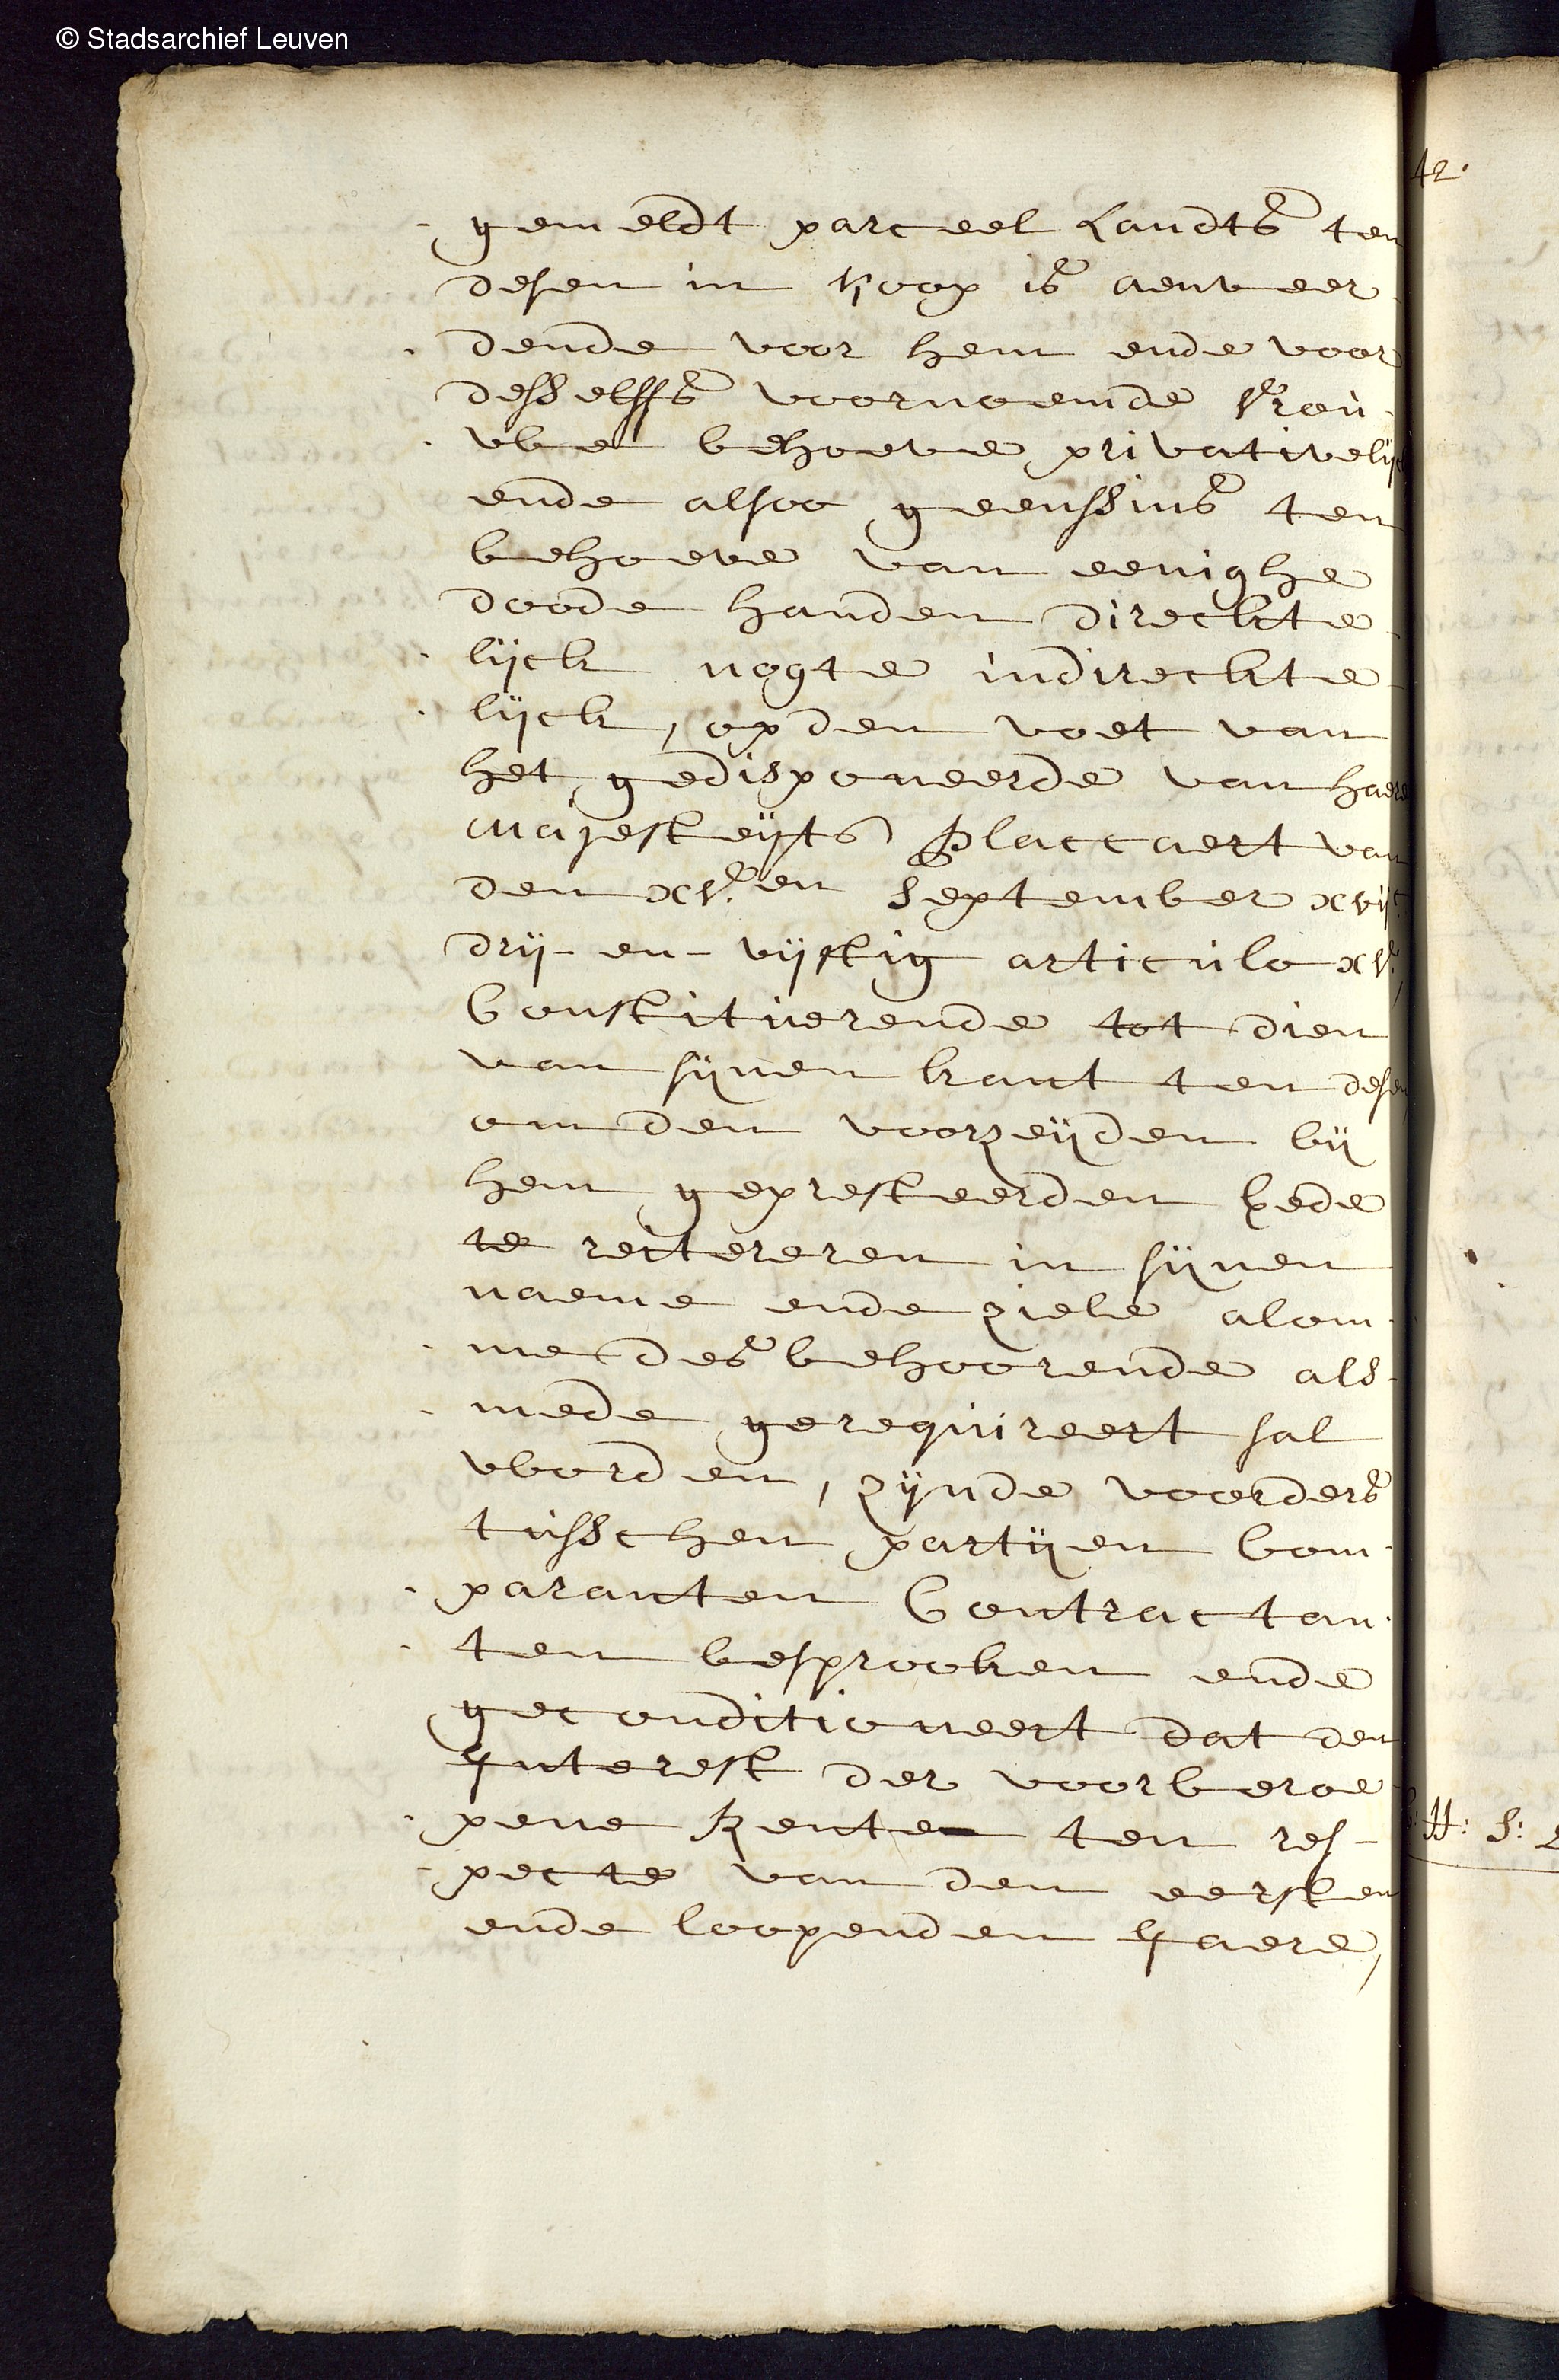 © Stadsarchief Leuven
42.
gemeldt parceel Landts ten
desen in koop is aenveer
dende voor hem ende voor
desselffs voornoemde vrou
we behoeve privativelijck
ende alsoo geenssins ten
behoeve van eenighe
doode handen direckte
lijck nogte indireckte
lijck, op den voet van
het gedisponeerde van haere
Majesteijts Placcaert van
den xv.en September xvijc
drij-en-vijftig articulo xv,
Constituerende tot dien
van sijnen kant ten desen
om den voorzeijden bij
hem gepresteerden Eede
te reitereren in sijnen
naeme ende ziele alom
me des behoorende als
mede gerequireert sal
worden, zijnde voorders
tusschen partijen Com
paranten Contractan
ten besprooken ende
geconditioneert dat den
Interest der voorberoe
pene Rente ten res-
pecte van den eersten
ende loopenden Jaere,
H: S: